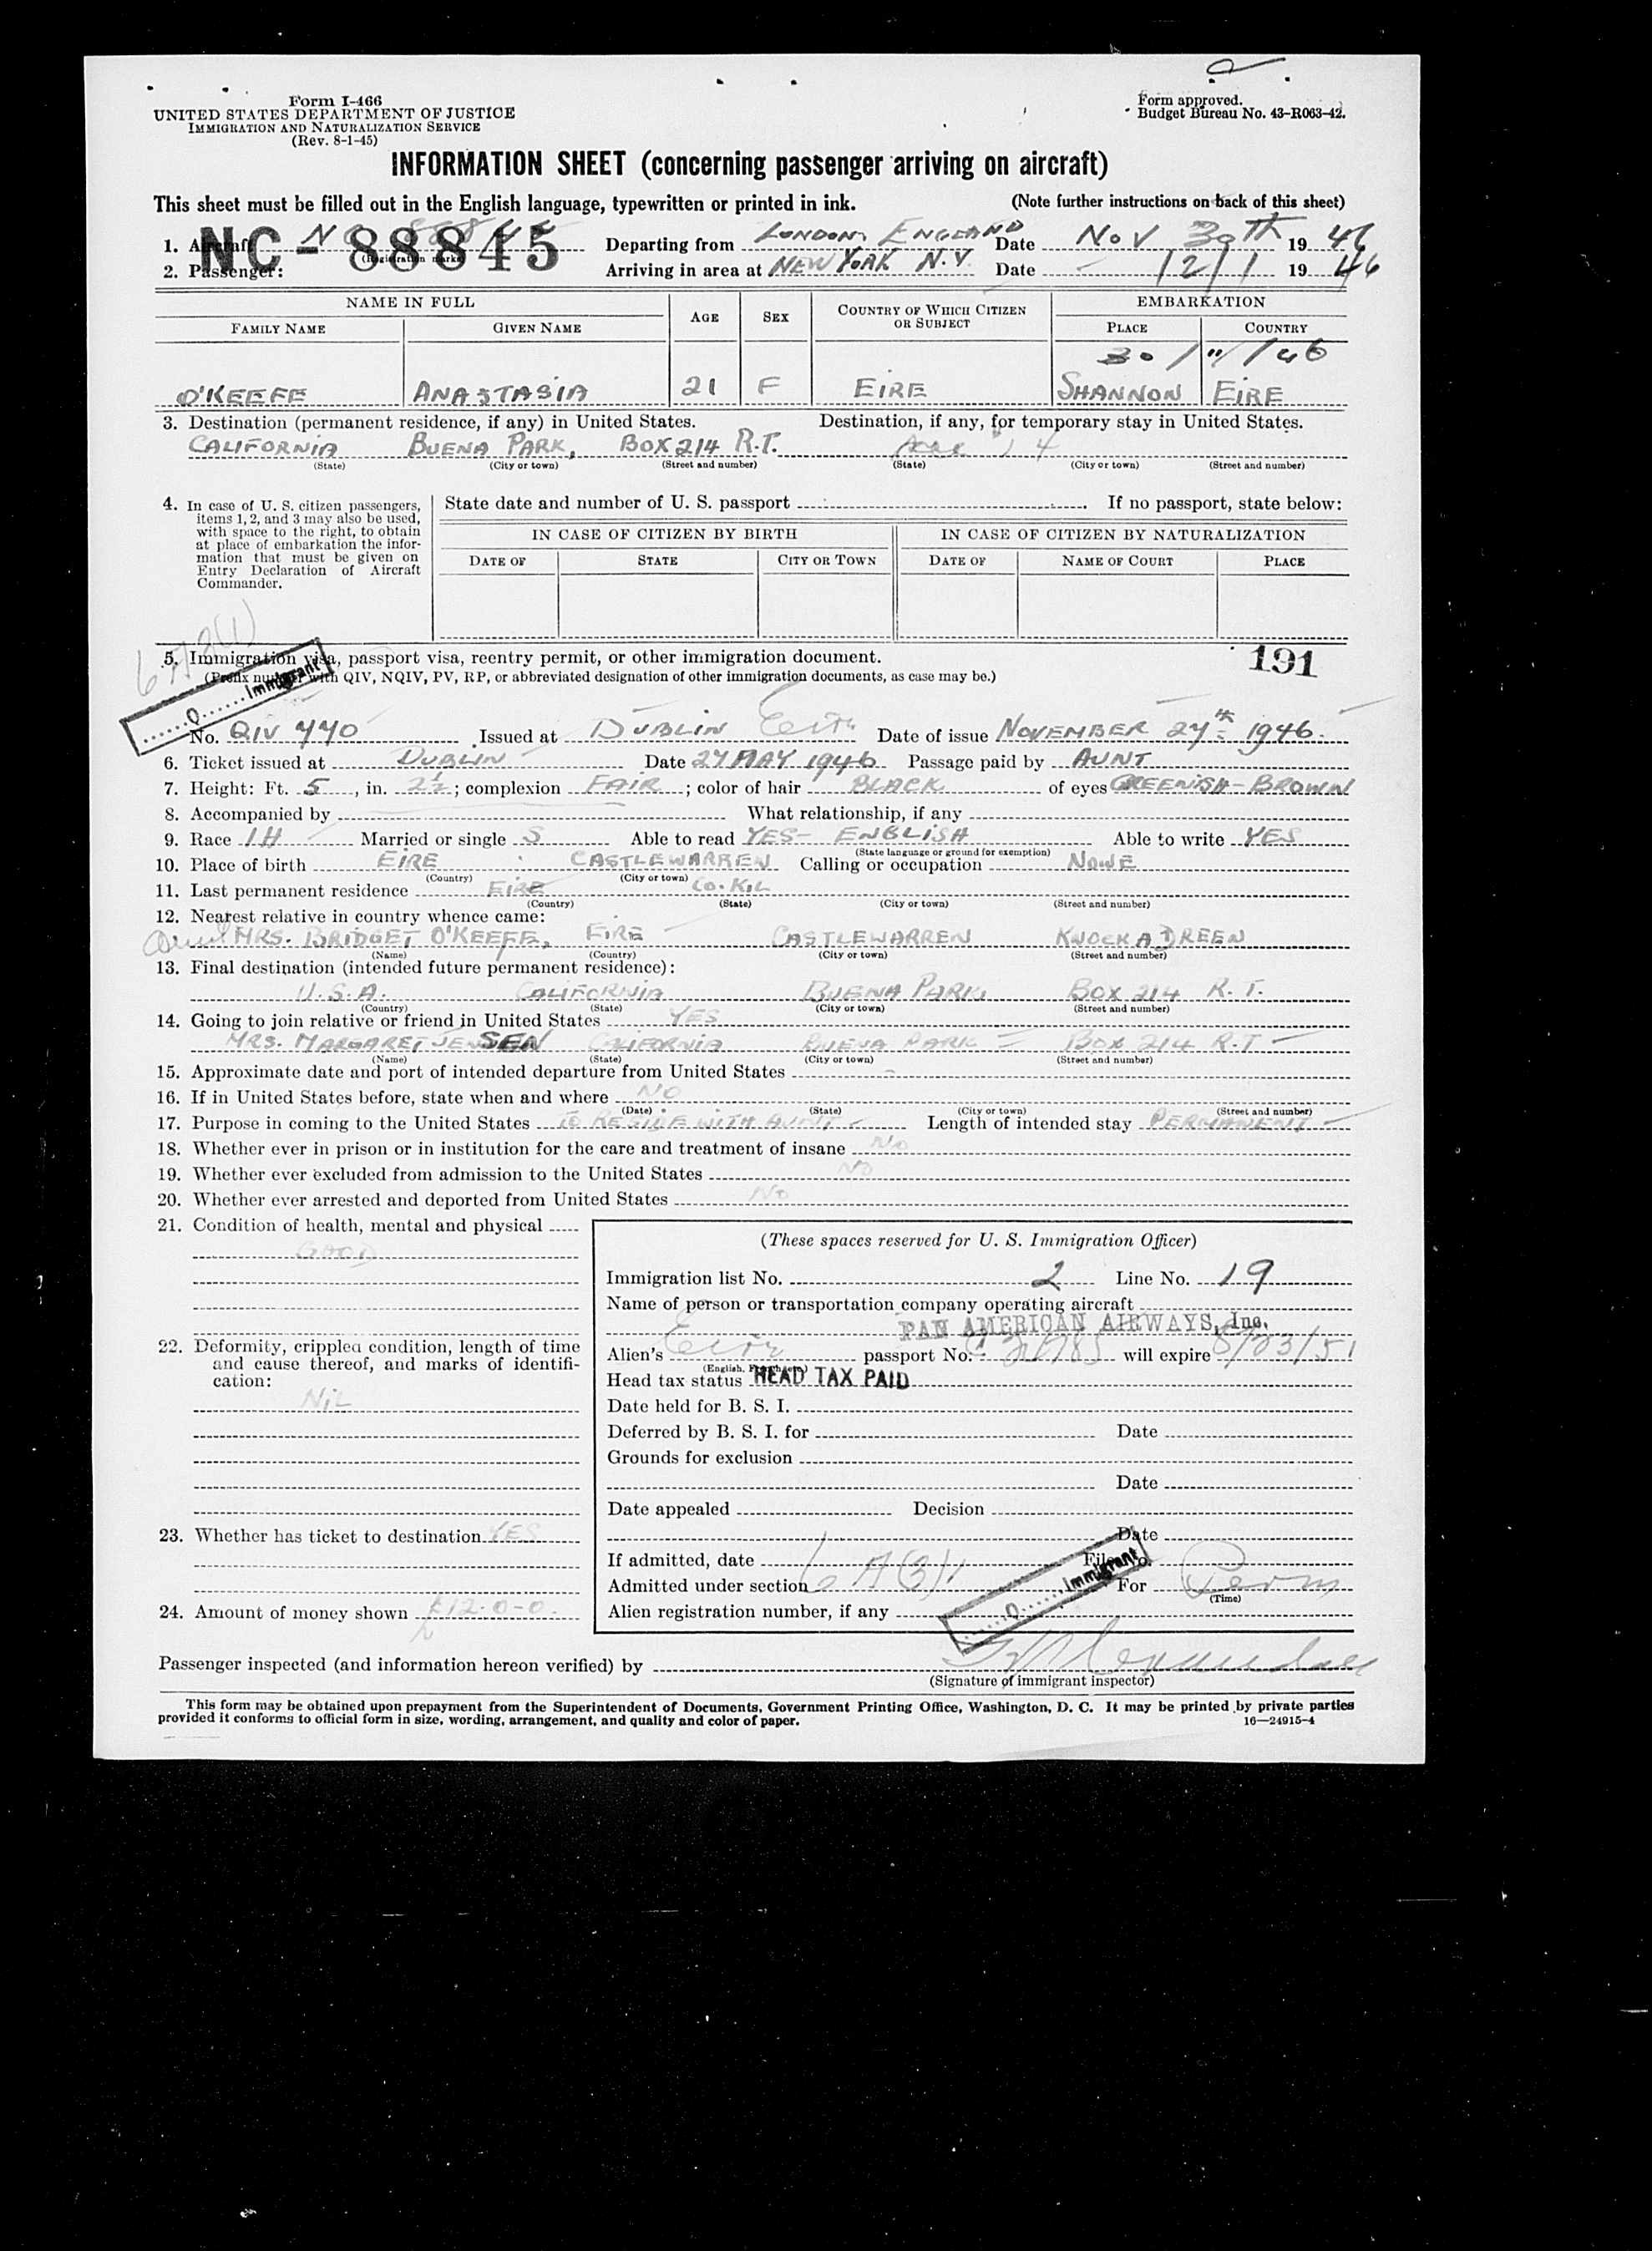 Form I-466
UNITED STATES DEPARTMENT OF JUSTICE
IMMIGRATION AND NATURALIZATION SERVICE
(Rev. 8-1-45)
Form approved.
Budget Bureau No. 43-R063-42.
INFORMATION SHEET (concerning passenger arriving on aircraft)
This sheet must be filled out in the English language, typewritten or printed in ink. (Note further instructions on back of this sheet)
1. Aircraft NC 88845 Departing from LONDON, ENGLAND Date NOV 30th 19 46
NC-88845
(Registration marks)
2. Passenger: Arriving in area at NEW YORK N.Y Date 12/1 19 46
NAME IN FULL AGE SEX COUNTRY OF WHICH CITIZEN OR SUBJECT EMBARKATION
FAMILY NAME GIVEN NAME PLACE COUNTRY
30/11/46
O'KEEFE ANASTASIA 21 F EIRE SHANNON EIRE
3. Destination (permanent residence, if any) in United States. Destination, if any, for temporary stay in United States.
CALIFORNIA BUENA PARK, BOX 214 R.T.
(State) (City or town) (Street and number) (State) (City or town) (Street and number)
4. In case of U. S. citizen passengers, items 1, 2, and 3 may also be used, with space to the right, to obtain at place of embarkation the information that must be given on Entry Declaration of Aircraft Commander.
State date and number of U. S. passport If no passport, state below:
IN CASE OF CITIZEN BY BIRTH IN CASE OF CITIZEN BY NATURALIZATION
DATE OF STATE CITY OR TOWN DATE OF NAME OF COURT PLACE
5. Immigration visa, passport visa, reentry permit, or other immigration document. 191
(Prefix number with QIV, NQIV, PV, RP, or abbreviated designation of other immigration documents, as case may be.)
Q Immigrant
No. QIV 440 Issued at DUBLIN Eire Date of issue NOVEMBER 27th 1946.
6. Ticket issued at DUBLIN Date 27 MAY 1946 Passage paid by AUNT
7. Height: Ft. 5, in. 2½; complexion FAIR; color of hair BLACK of eyes GREENISH-BROWN
8. Accompanied by What relationship, if any
9. Race IH Married or single S Able to read YES- ENGLISH Able to write YES
(State language or ground for exemption)
10. Place of birth EIRE CASTLEWARREN Calling or occupation NONE
(Country) (City or town)
11. Last permanent residence EIRE CO. KIL
(Country) (State) (City or town) (Street and number)
12. Nearest relative in country whence came:
MRS. BRIDGET O'KEEFE, EIRE CASTLEWARREN KNOCKADREEN
(Name) (Country) (City or town) (Street and number)
13. Final destination (intended future permanent residence):
U.S.A. CALIFORNIA BUENA PARK BOX 214 R.T.
(Country) (State) (City or town) (Street and number)
14. Going to join relative or friend in United States YES
MRS. MARGARET JENSEN CALIFORNIA BUENA PARK BOX 214 R.T
(Name) (State) (City or town) (Street and number)
15. Approximate date and port of intended departure from United States
16. If in United States before, state when and where NO
(Date) (State) (City or town) (Street and number)
17. Purpose in coming to the United States TO RESIDE WITH AUNT Length of intended stay PERMANENT
18. Whether ever in prison or in institution for the care and treatment of insane NO
19. Whether ever excluded from admission to the United States NO
20. Whether ever arrested and deported from United States NO
21. Condition of health, mental and physical
GOOD
22. Deformity, crippled condition, length of time and cause thereof, and marks of identification:
NIL
23. Whether has ticket to destination YES
24. Amount of money shown £12-0-0.
(These spaces reserved for U. S. Immigration Officer)
Immigration list No. 2 Line No. 19
Name of person or transportation company operating aircraft
PAN AMERICAN AIRWAYS, Inc.
Alien's Eire passport No. will expire 8/23/51
Head tax status HEAD TAX PAID
Date held for B. S. I.
Deferred by B. S. I. for Date
Grounds for exclusion
Date
Date appealed Decision
Date
If admitted, date File No.
Admitted under section 6A(3) For Perm
(Time)
Q Immigrant
Alien registration number, if any
Passenger inspected (and information hereon verified) by
(Signature of immigrant inspector)
This form may be obtained upon prepayment from the Superintendent of Documents, Government Printing Office, Washington, D. C. It may be printed by private parties
provided it conforms to official form in size, wording, arrangement, and quality and color of paper. 16—24915-4